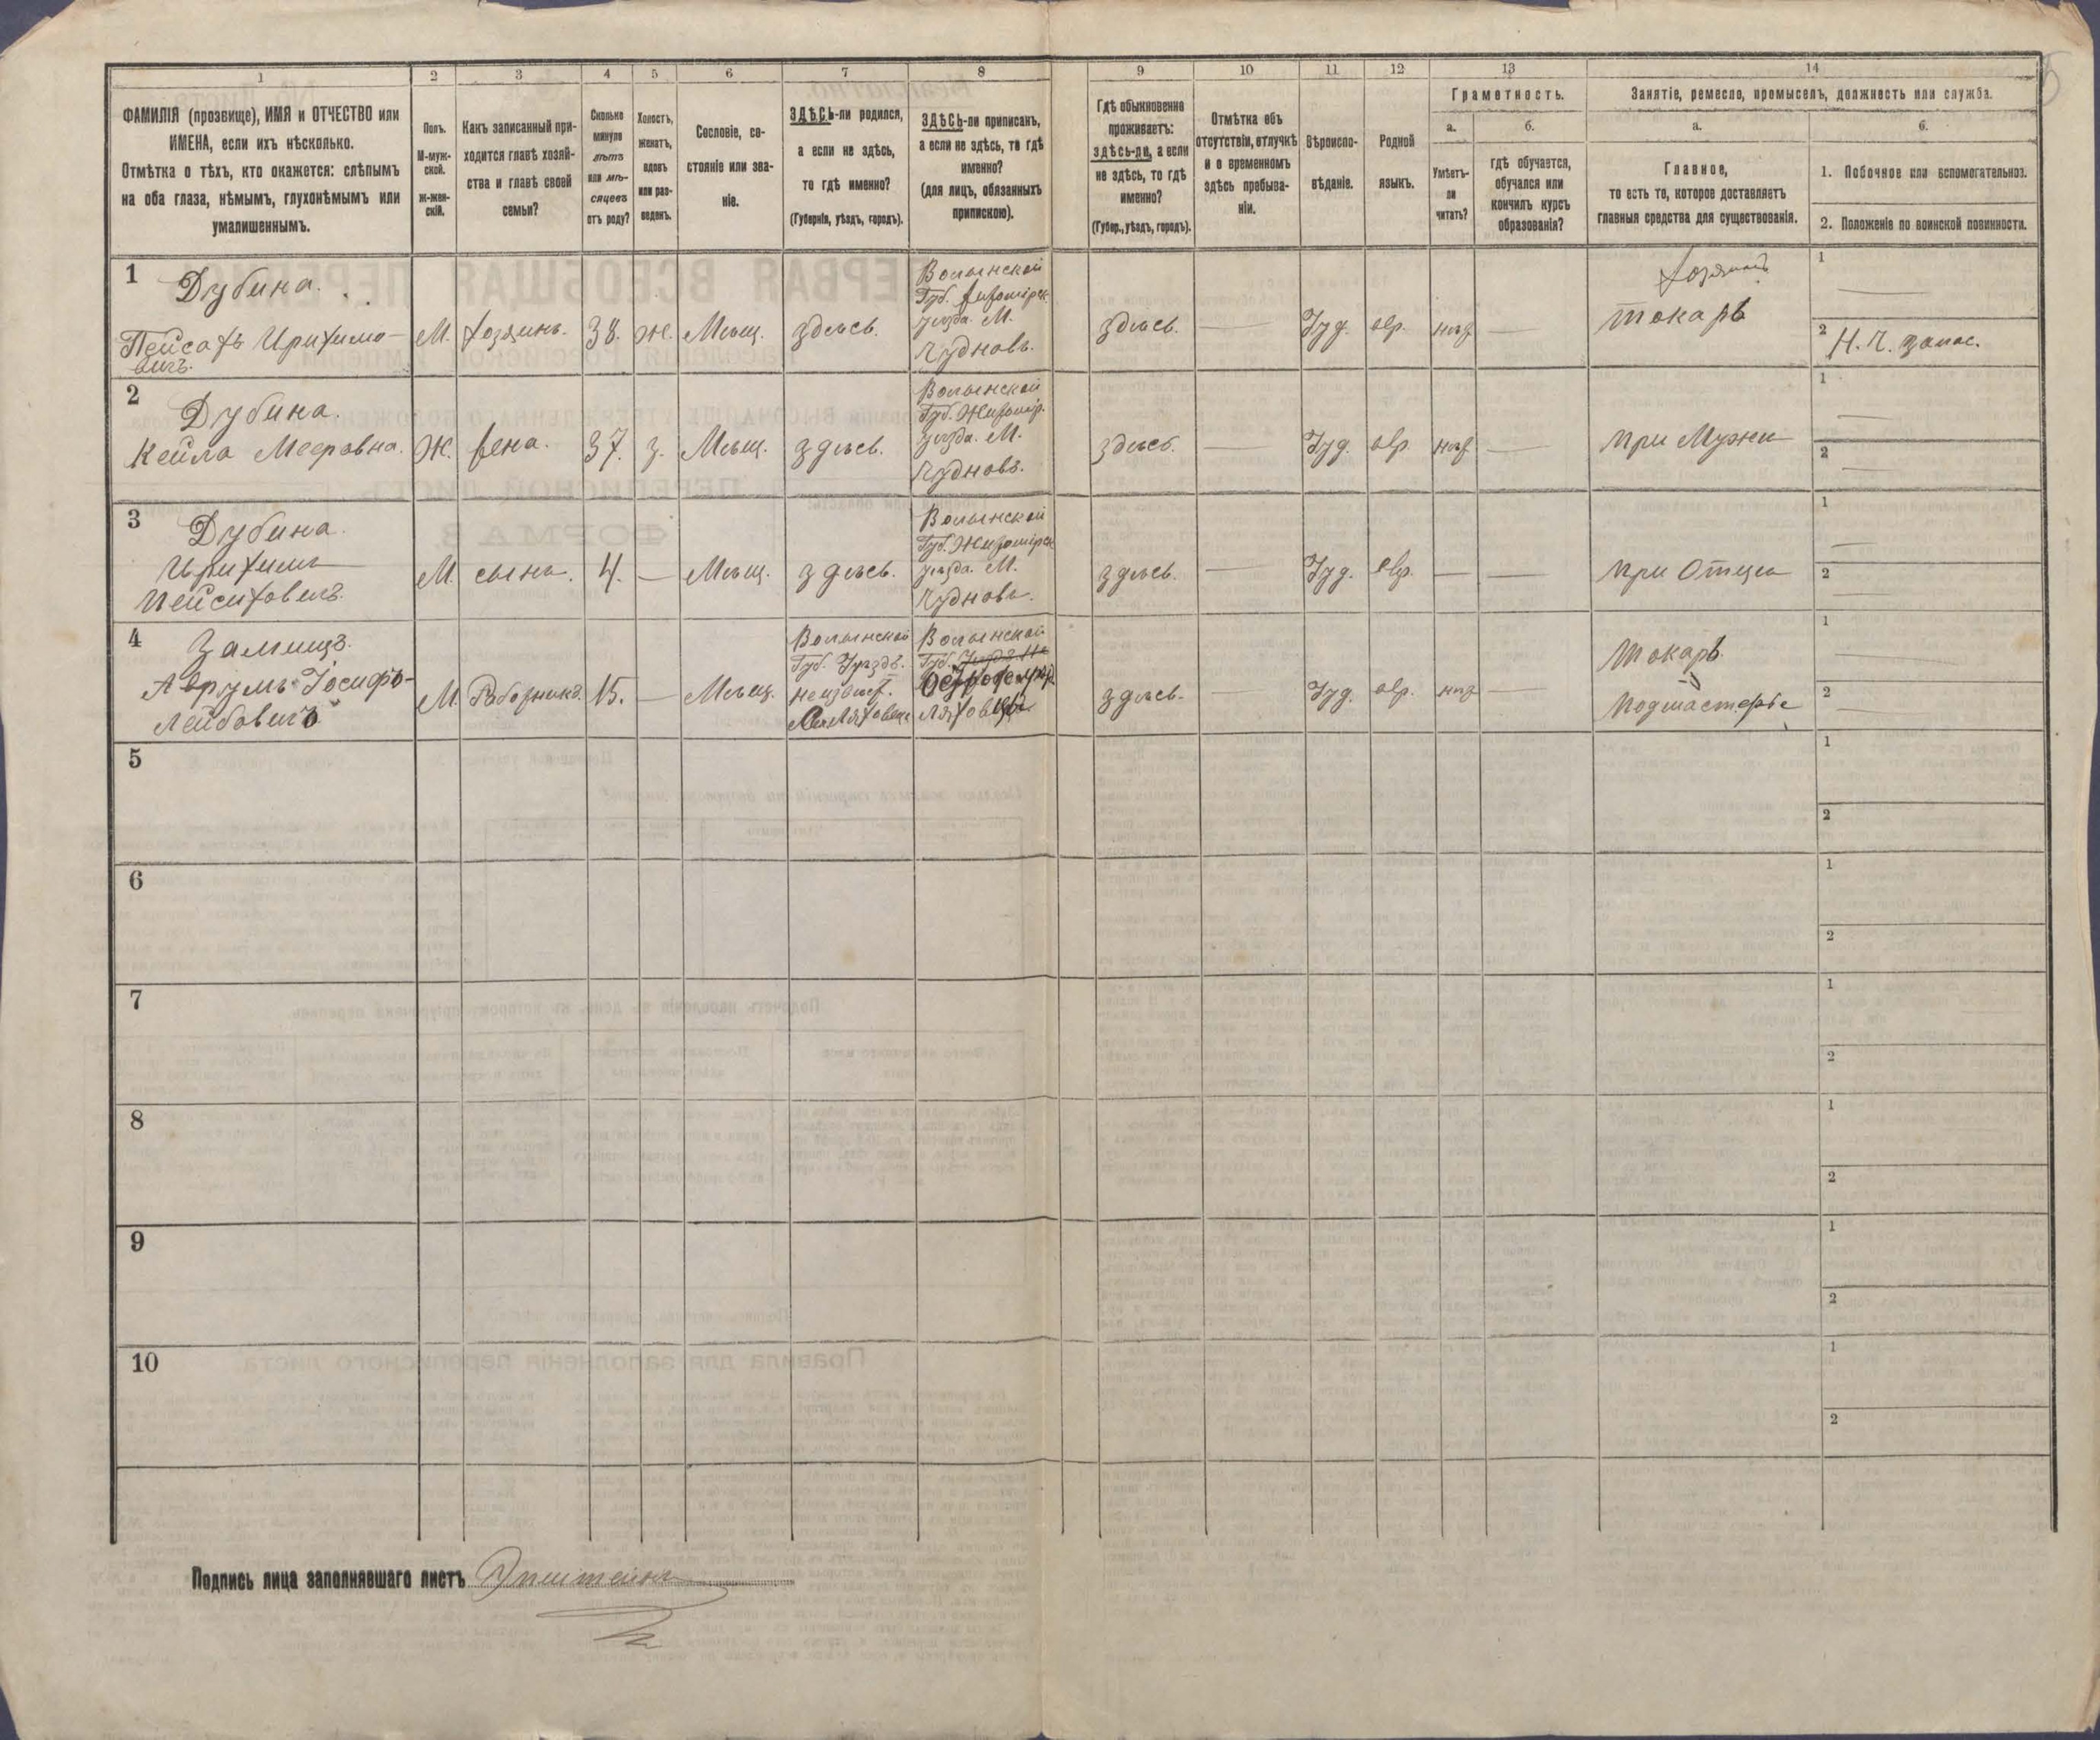 1
2
3
4
5
6
7
8
9
10
11
12
13
14
ФАМИЛІЯ (прозвище), ИМЯ и ОТЧЕСТВО или
ИМЕНА, если ихъ нѣсколько.
Отмѣтка о тѣхъ, кто окажется: слѣпымъ
на оба глаза, нѣмымъ, глухонѣмымъ или
умалишеннымъ.
Полъ.
М-муж-
ской.
Ж-жен-
скій.
Какъ записанный при-
ходится главѣ хозяй-
ства и главѣ своей
семьи?
Сколько
минуло
лѣтъ
или мѣ-
сяцевъ
отъ роду?
Холостъ,
женатъ,
вдовъ
или раз-
веденъ.
Сословіе, со-
стояніе или зва-
ніе.
ЗДѢСЬ-ли родился,
а если не здѣсь,
то гдѣ именно?
(Губернія, уѣздъ, городъ).
ЗДѢСЬ-ли приписанъ,
а если не здѣсь, то гдѣ
именно?
(для лицъ, обязанныхъ
припискою).
Гдѣ обыкновенно
проживаетъ:
здѣсь-ли, а если
не здѣсь, то гдѣ
именно?
(Губер., уѣздъ, городъ).
Отмѣтка объ
отсутствіи, отлучкѣ
и о временномъ
здѣсь пребыва-
ніи.
Вѣроиспо-
вѣданіе.
Родной
языкъ.
Грамотность.
а.
Умѣетъ-
ли
читать?
б.
гдѣ обучается,
обучался или
кончилъ курсъ
образованія?
Занятіе, ремесло, промыселъ, должность или служба.
а.
Главное,
то есть то, которое доставляетъ
главныя средства для существованія.
б.
1. Побочное или вспомогательное.
2. Положеніе по воинской повинности.
1
Дубина.
Пейсахъ Ирихимо-
вичъ.
М. хозяинъ. 38. Ж. Мѣщ. здѣсь.
Волынской
Губ. Житомірск.
уѣзда. М.
Чудновъ.
здѣсь. — Іуд. евр. —
хозяинъ
токарь
1
2 Н. Ч. запас.
2
Дубина.
Кейла Мееровна.
Ж. жена. 37. з. Мѣщ. здѣсь.
Волынской
Губ. Житомір.
уѣзда. М.
Чудновъ.
здѣсь. — Іуд. евр. —
при Мужи
1
2
3
Дубина.
Ирихимъ
Пейсиховичъ.
М. сынъ. 4. — Мѣщ. здѣсь.
Волынской
Губ. Житомірск
уѣзда. М.
Чудновъ.
здѣсь. — Іуд. евр. — —
при Отцѣ
1
2
4
Аврумъ Іосифъ-
Лейбовичъ
М. Работникъ. 15. — Мѣщ.
Волынской
Губ. Уѣздъ.
неизвѣст.
Ляховец
Волынской
Губ.
Ляховцы
здѣсь. Іуд. евр. —
Токарь.
Подмастерье
1
2
5
1
2
6
1
2
7
1
2
8
1
2
9
1
2
10
1
2
Подпись лица заполнявшаго листъ